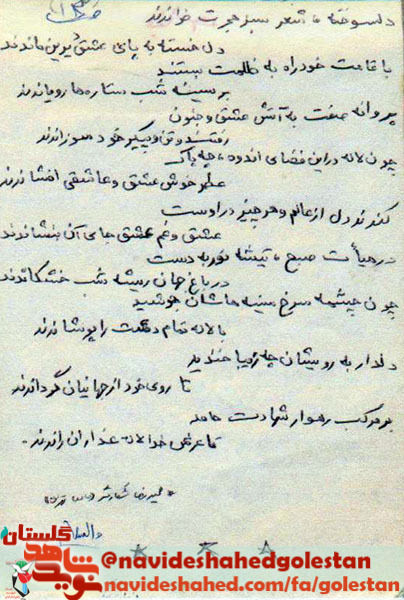 دلسوخته ما شعر سبز هجرت خواندند
دل خسته به پای عشق دیرین ماندند
با قامت خود راه به ظلمت بستند
بر سینه شب ستاره ها رویاندند
پروانه صفت به آتش عشق و جنون
رفتند و تن و پیکر خود سوزاندند
چون لاله در این فضای اندوه، چه پاک
عطر خوش عشق و عاشقی افشاندند
کندند دل از عالم و هر چیز در اوست
عشق و غم عشق جای آن بنشاندند
در هیأت صبح، تیشه نور به دست
در باغ جهان ریشه شب خشکاندند
چون چشمه سرخ سینه هاشان جوشید
با لاله تمام دشت را پوشاندند
دلدار به رویشان چه زیبا خندید
تا روی خود از جهانیان گرداندند
بر مرکب رهوار شهادت
تا عرش خدا لاله عذاران راندند.
والسلام
گلستان
نوید شاهد
@navideshahedgolestan
navideshahed.com/fa/golestan